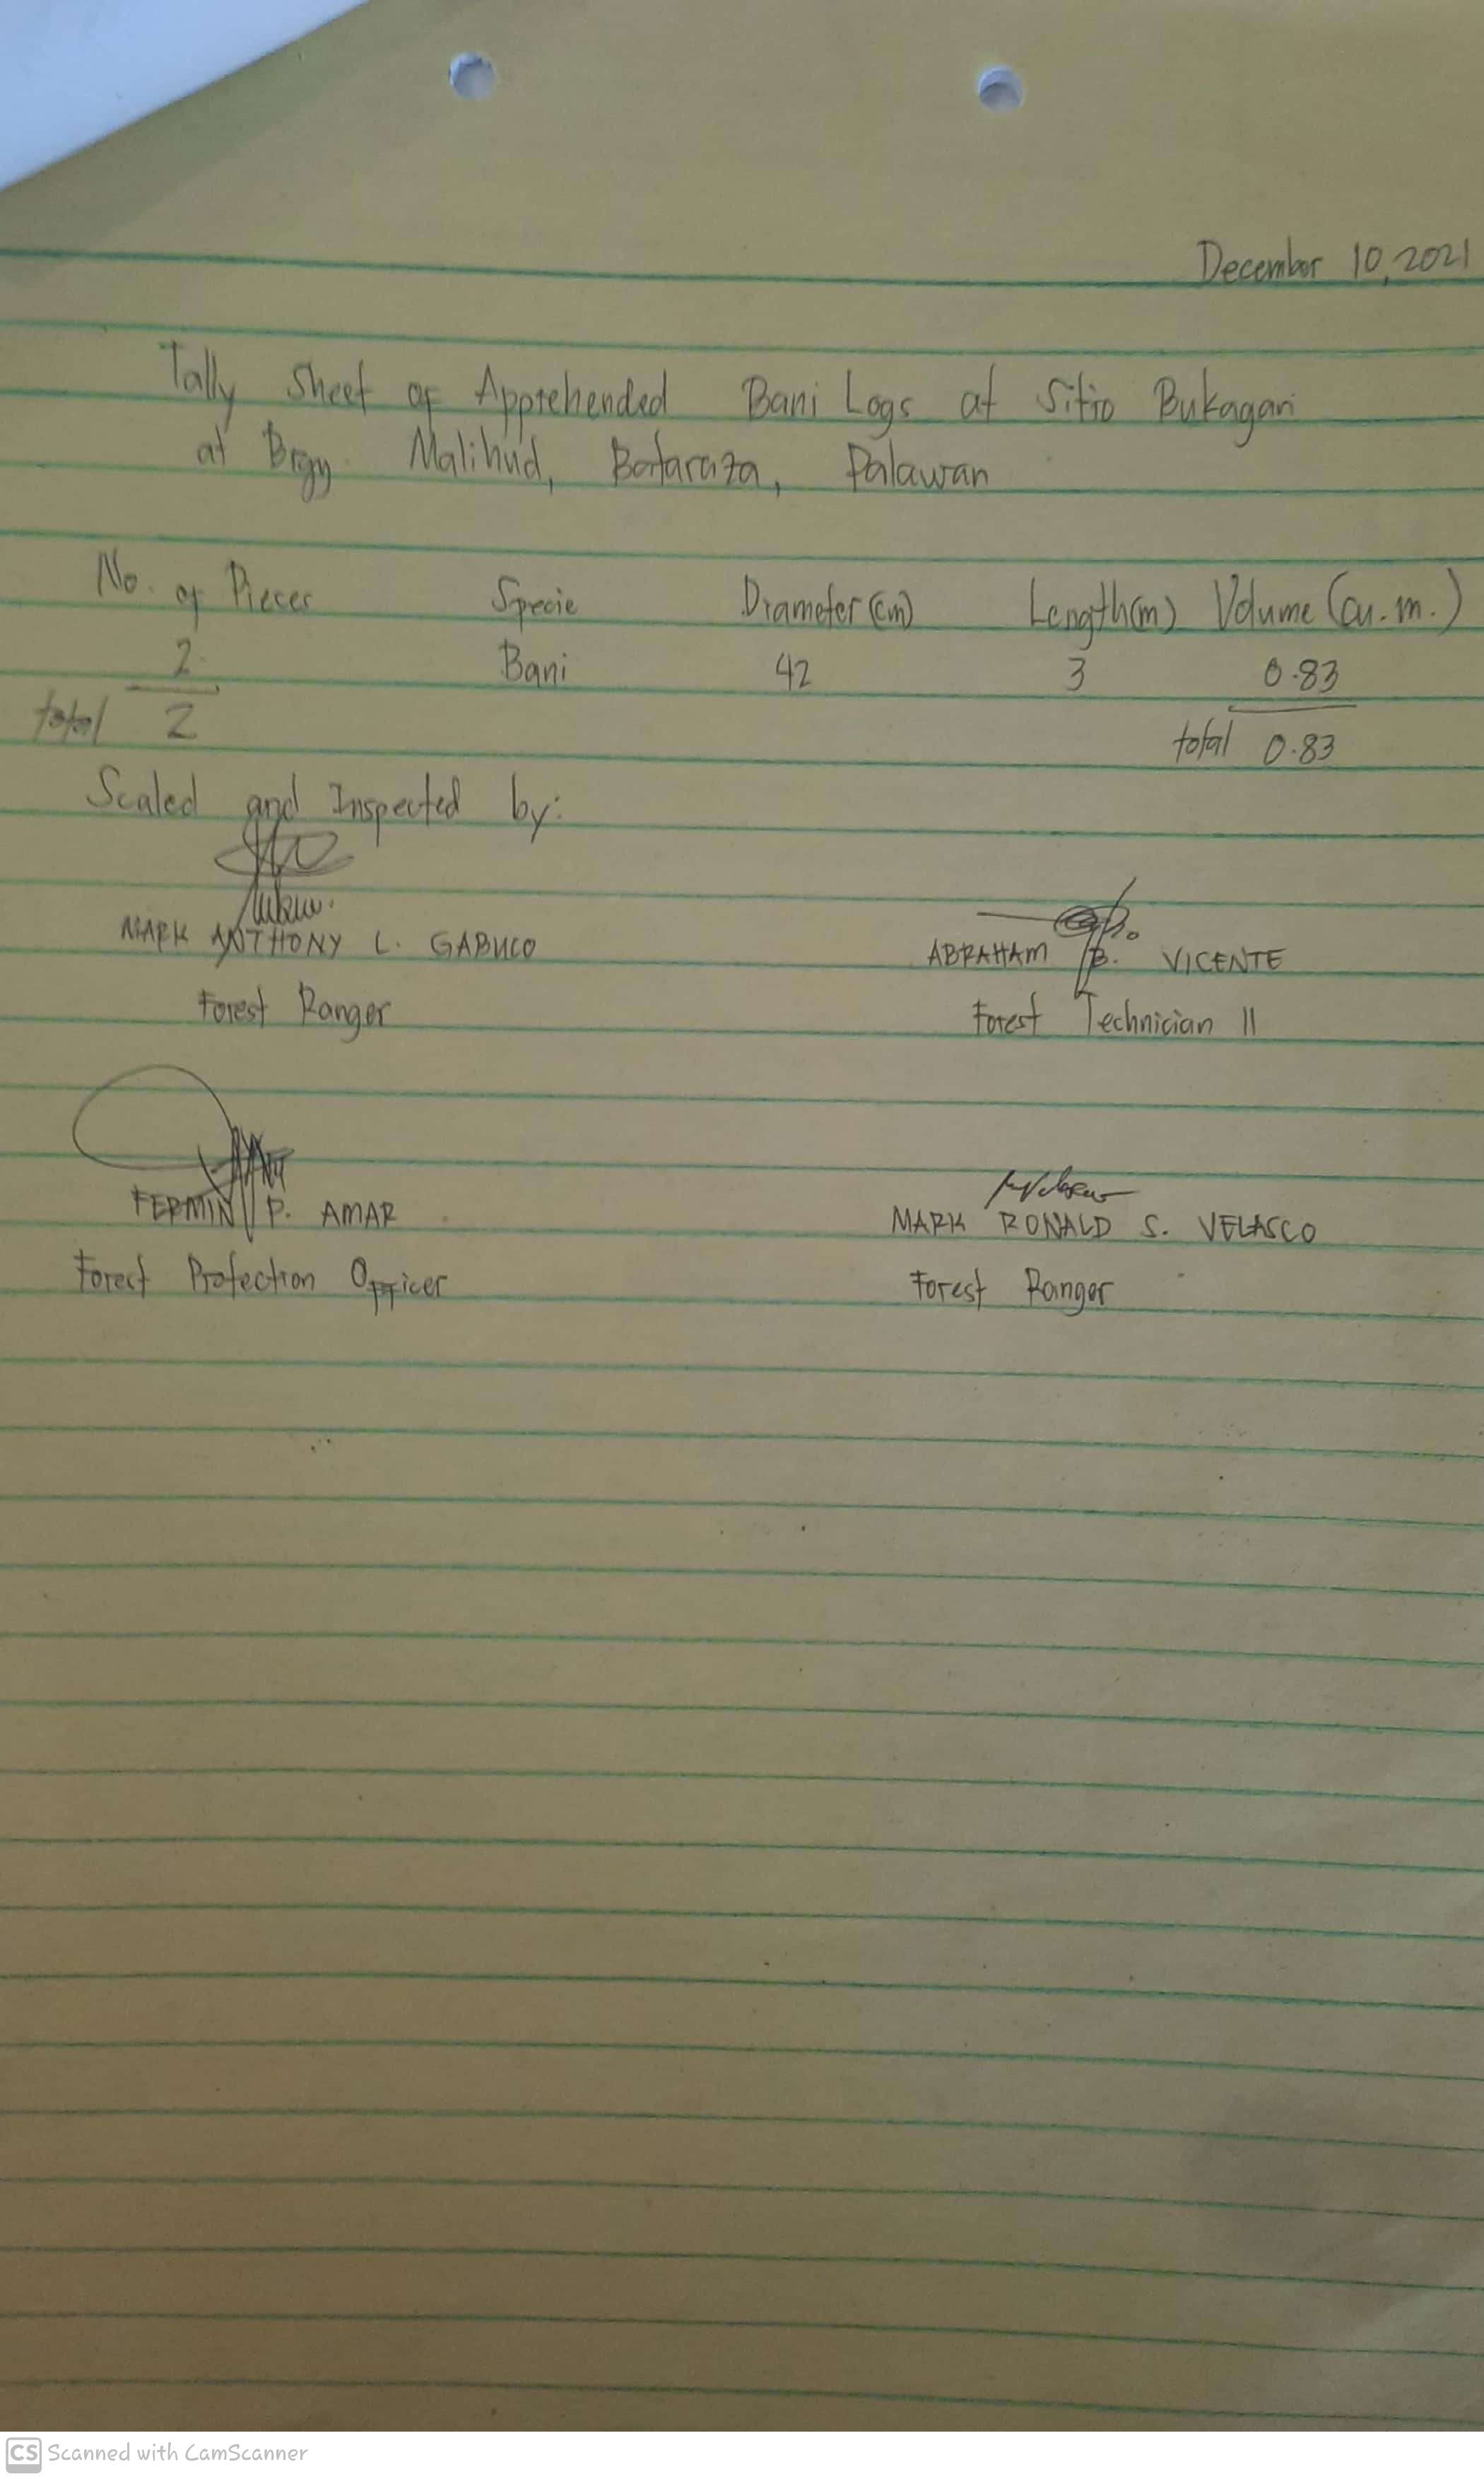 December 10, 2021
Tally Sheet of Apprehended Bani Logs at Sitio Bukagan
at Brgy. Malihud, Bataraza, Palawan
No. of Pieces Specie Diameter (cm) Length (m) Volume (cu. m.)
2 Bani 42 3 0.83
total 2 total 0.83
Scaled and Inspected by:
MARK ANTHONY L. GABUCO ABRAHAM B. VICENTE
Forest Ranger Forest Technician II
FERMIN P. AMAR MARK RONALD S. VELASCO
Forest Protection Officer Forest Ranger
CS Scanned with CamScanner